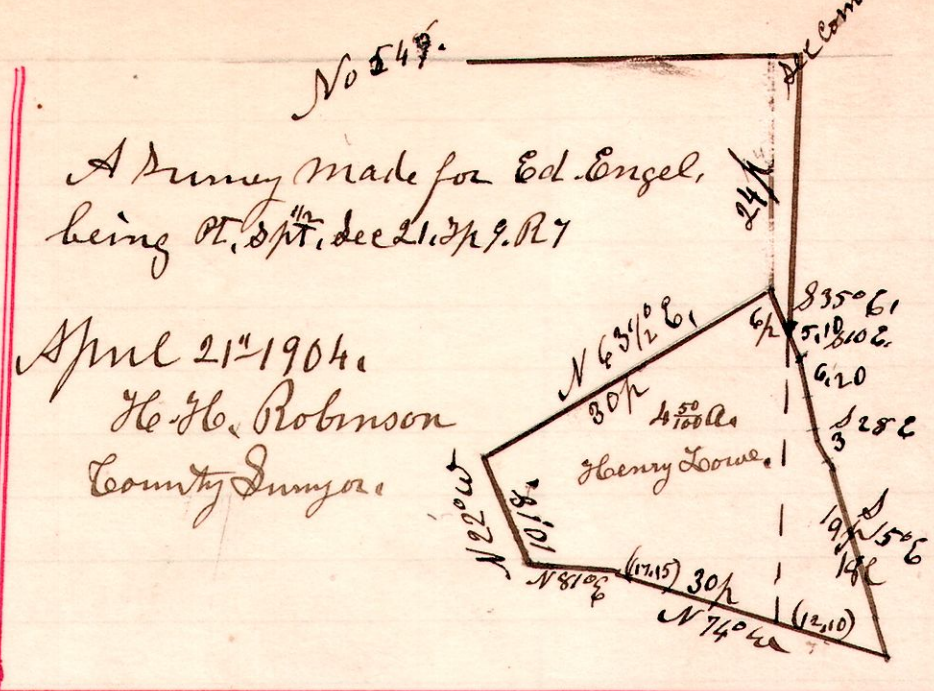 No 549.
Sec Com
A Survey Made for Ed. Engel,
being Pt. S pt. 1/2 Sec 21. Tp 9. R 7
April 21st 1904.
H. H. Robinson
County Survyor.
24 p
S 35° E.
6 p
5.10
S 10 E.
6.20
S 28 E
3
S 15° E
19 p
18 l
N 63 1/2° E.
30 p
4 50/100 A.
Henry Lowe.
N 22° W
10.18.
N 81° E
(17.15)
30 p
N 74° W
(12.10)